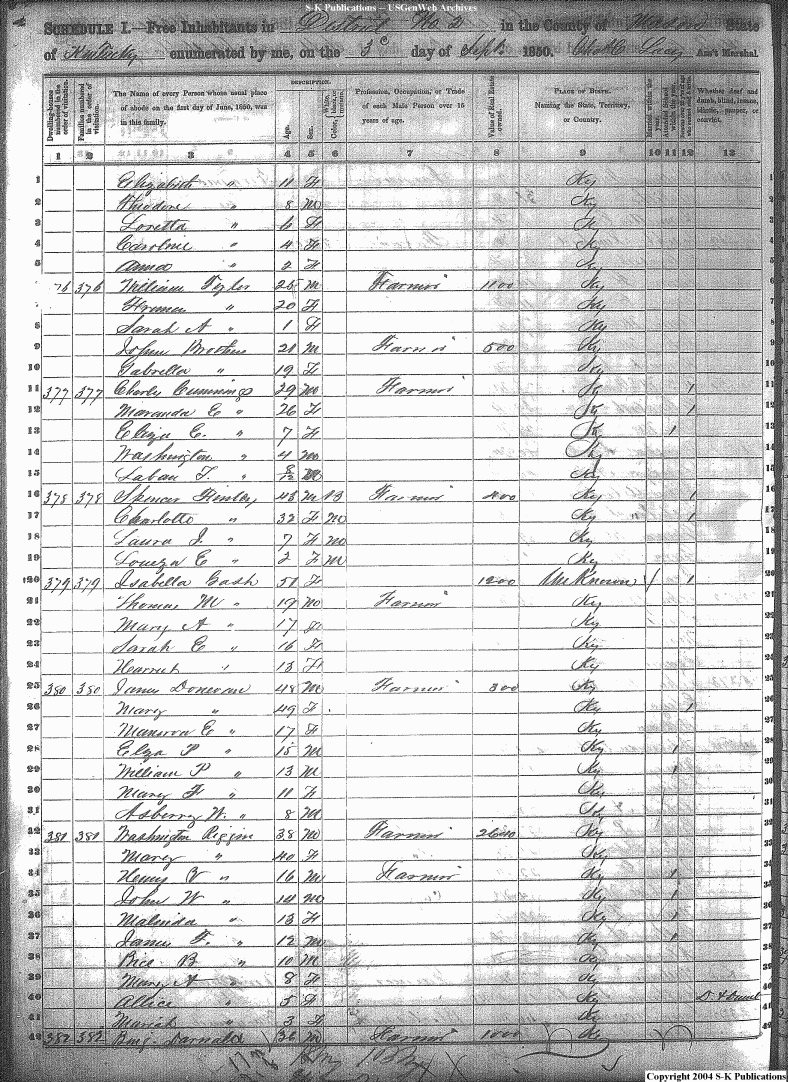 S-K Publications – USGenWeb Archives
SCHEDULE I.—Free Inhabitants in District No 2 in the County of State
of Kentucky enumerated by me, on the 3d day of Sept 1850. Ass't Marshal
Dwelling-houses numbered in the order of visitation.
Families numbered in the order of visitation.
The Name of every Person whose usual place of abode on the first day of June, 1850, was in this family.
DESCRIPTION.
Age.
Sex.
Color, White, black, or mulatto.
Profession, Occupation, or Trade of each Male Person over 15 years of age.
Value of Real Estate owned.
PLACE OF BIRTH. Naming the State, Territory, or Country.
Married within the year.
Attended School within the year.
Whether deaf and dumb, blind, insane, idiotic, pauper, or convict.
1 2 3 4 5 6 7 8 9 10 11 12 13
1 Elizabeth " 11 F Ky 1
2 Theodore " 8 M Ky 2
3 Loretta " 6 F Ky 3
4 Caroline " 4 F Ky 4
5 Anna " 2 F Ky 5
76 376 William 25 M Farmer 1100 Ky 6
" 20 F Ky 7
8 Sarah A " 1 F Ky 8
9 John 21 M Farmer 500 Ky 9
10 Gabrella " 19 F Ky 10
11 377 377 Charly Cummings 29 M Farmer Ky 1 11
12 Maranda E " 26 F Ky 1 12
13 Eliza E. " 7 F Ky 1 13
14 Washington " 4 M Ky 14
15 Laban T. " 8/12 M Ky 15
16 378 378 Spencer 43 M B Farmer 400 Ky 1 16
17 Charlotte " 32 F M Ky 1 17
18 Laura J. " 7 F M Ky 18
19 Loueza E " 2 F M Ky 19
20 379 379 Isabella Gash 51 F 1200 Unknown / 1 20
21 Thomas M " 19 M Farmer Ky 21
22 Mary A " 17 F Ky 22
23 Sarah E " 16 F Ky 23
24 Harriet " 13 F Ky 24
25 380 380 James Donevan 48 M Farmer 300 Ky 25
26 Marey " 49 F Ky 1 26
27 Manerva E " 17 F Ky 27
28 Elza P " 15 M Ky 1 28
29 William P " 13 M Ky 1 29
30 Marey F " 11 F Ky 30
31 Asberry W. " 8 M Ky 31
32 381 381 Washington Riggin 38 M Farmer Ky 32
33 Marey " 40 F Ky 33
34 Henry " 16 M Farmer Ky 1 34
35 John W " 14 M Ky 1 35
36 Malinda " 13 F Ky 1 36
37 James F. " 12 M Ky 1 37
38 Rice B " 10 M Ky 38
39 Marey A " 8 F Ky 39
40 Allice " 5 F Ky D & Dumb 40
41 Mariah " 3 F Ky 41
42 382 382 Benj. Darnald 36 M Farmer 1000 Ky 42
Copyright 2004 S-K Publications